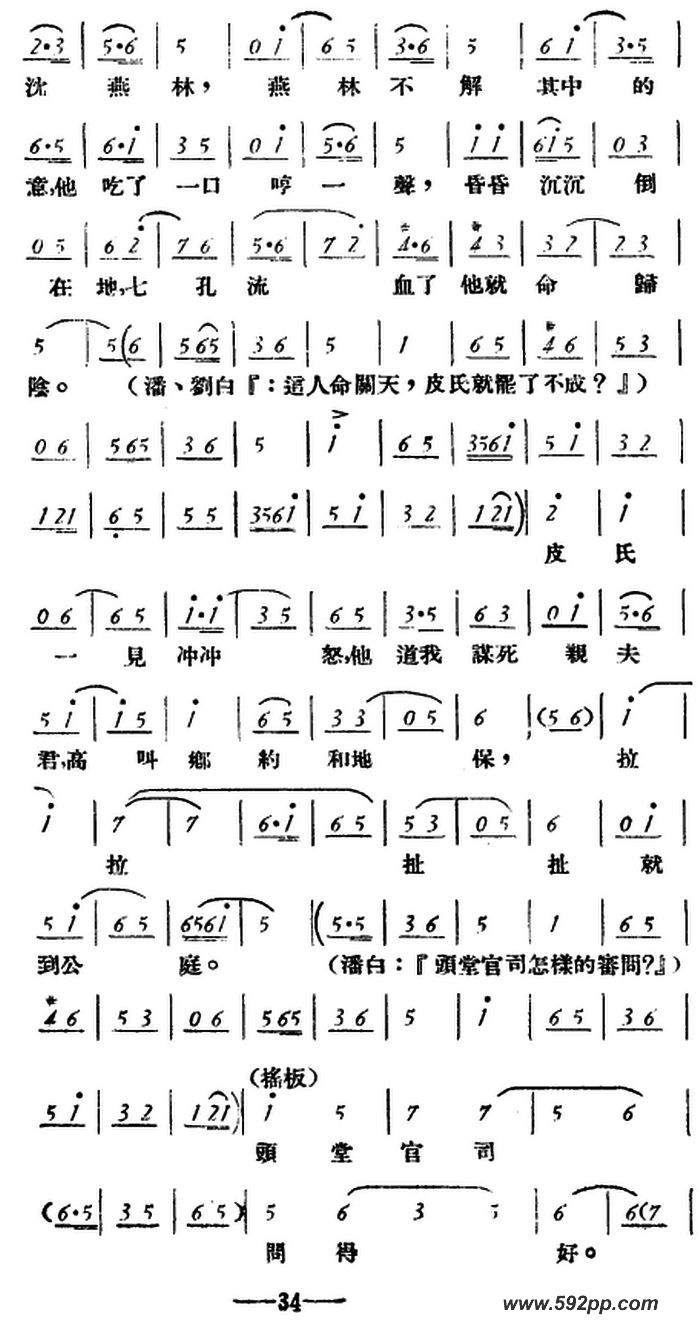 2·3 | 5·6 | 5 | 0 i | 6 5 | 3·6 | 5 | 6 i | 3·5 |
沈 燕 林， 燕 林 不 解 其中 的
6·5 | 6·i | 3 5 | 0 i | 5·6 | 5 | i i | 6i5 | 0 3 |
意，他 吃了 一口 哼 一 聲， 昏昏 沉沉 倒
0 5 | 6 2 | 7 6 | 5·6 | 7 2 | #4·6 | #4 3 | 3 2 | 2 3 |
在 地，七 孔 流 血了 他就 命 歸
5 | 5 (6 | 565 | 3 6 | 5 | 1 | 6 5 | #4 6 | 5 3 |
陰。 （潘、劉白『：這人命關天，皮氏就罷了不成？』）
0 6 | 565 | 3 6 | 5 | i | 6 5 | 356i | 5 i | 3 2 |
121 | 6 5 | 5 5 | 356i | 5 i | 3 2 | 121) | 2 | i |
皮 氏
0 6 | 6 5 | i·i | 3 5 | 6 5 | 3·5 | 6 3 | 0 i | 5·6 |
一 見 冲冲 怒，他 道我 謀死 親 夫
5 i | i 5 | i | 6 5 | 3 3 | 0 5 | 6 | (5 6) | i |
君，高 叫 鄉 約 和地 保， 拉
i | 7 | 7 | 6·i | 6 5 | 5 3 | 0 5 | 6 | 0 i |
拉 扯 扯 就
5 i | 6 5 | 656i | 5 | (5·5 | 3 6 | 5 | 1 | 6 5 |
到公 庭。 （潘白：『頭堂官司怎樣的審問？』）
#4 6 | 5 3 | 0 6 | 565 | 3 6 | 5 | i | 6 5 | 3 6 |
（搖板）
5 i | 3 2 | 121) | i 5 7 7 | 5 6 |
頭 堂 官 司
(6·5 | 3 5 | 6 5) | 5 6 3 5 | 6 | 6(7 |
問 得 好。
—34—
www.592pp.com